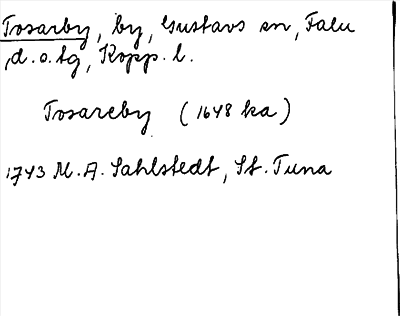 Tosarby, by, Gustavs sn, Falu
d.o.tg, Kopp. l.
Tosareby (1648 ka)
1743 M.A. Sahlstedt, St. Tuna